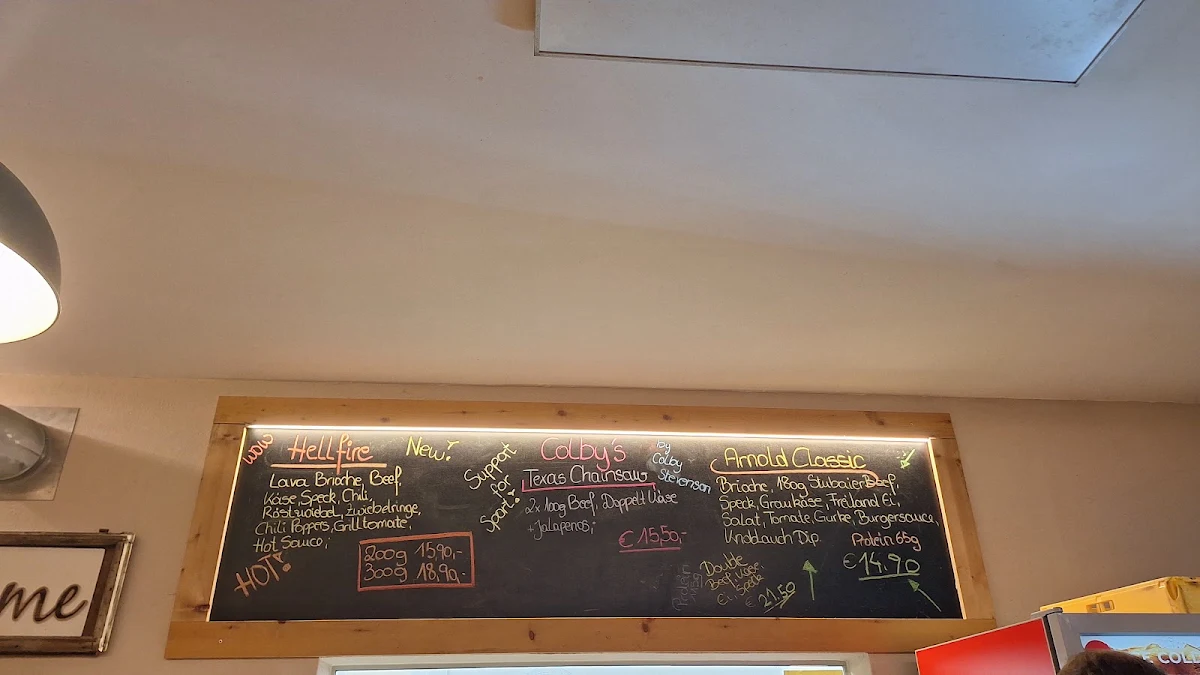 wow
Hellfire
New!
Lava Brioche, Beef,
Käse, Speck, Chili,
Röstzwiebel, Zwiebelringe,
Chili Poppers, Grilltomate,
Hot Sauce,;
HOT!
200g 15,90,-
300g 18,90,-
Support
for
Sport!
Colby's
Texas Chainsaw
2x 100g Beef, Doppelt Käse
+ Jalapenos,;
€ 15,50,-
By
Colby
Stevenson
Arnold Classic
Brioche, 180g Stubaier Beef,
Speck, Graukäse, Freiland Ei,
Salat, Tomate, Gurke, Burgersauce,
Knoblauch Dip.
Protein 65g
€ 14.90
Double
Beef, Käse,
Ei, Speck
€ 21.50
Protein
me
COLD